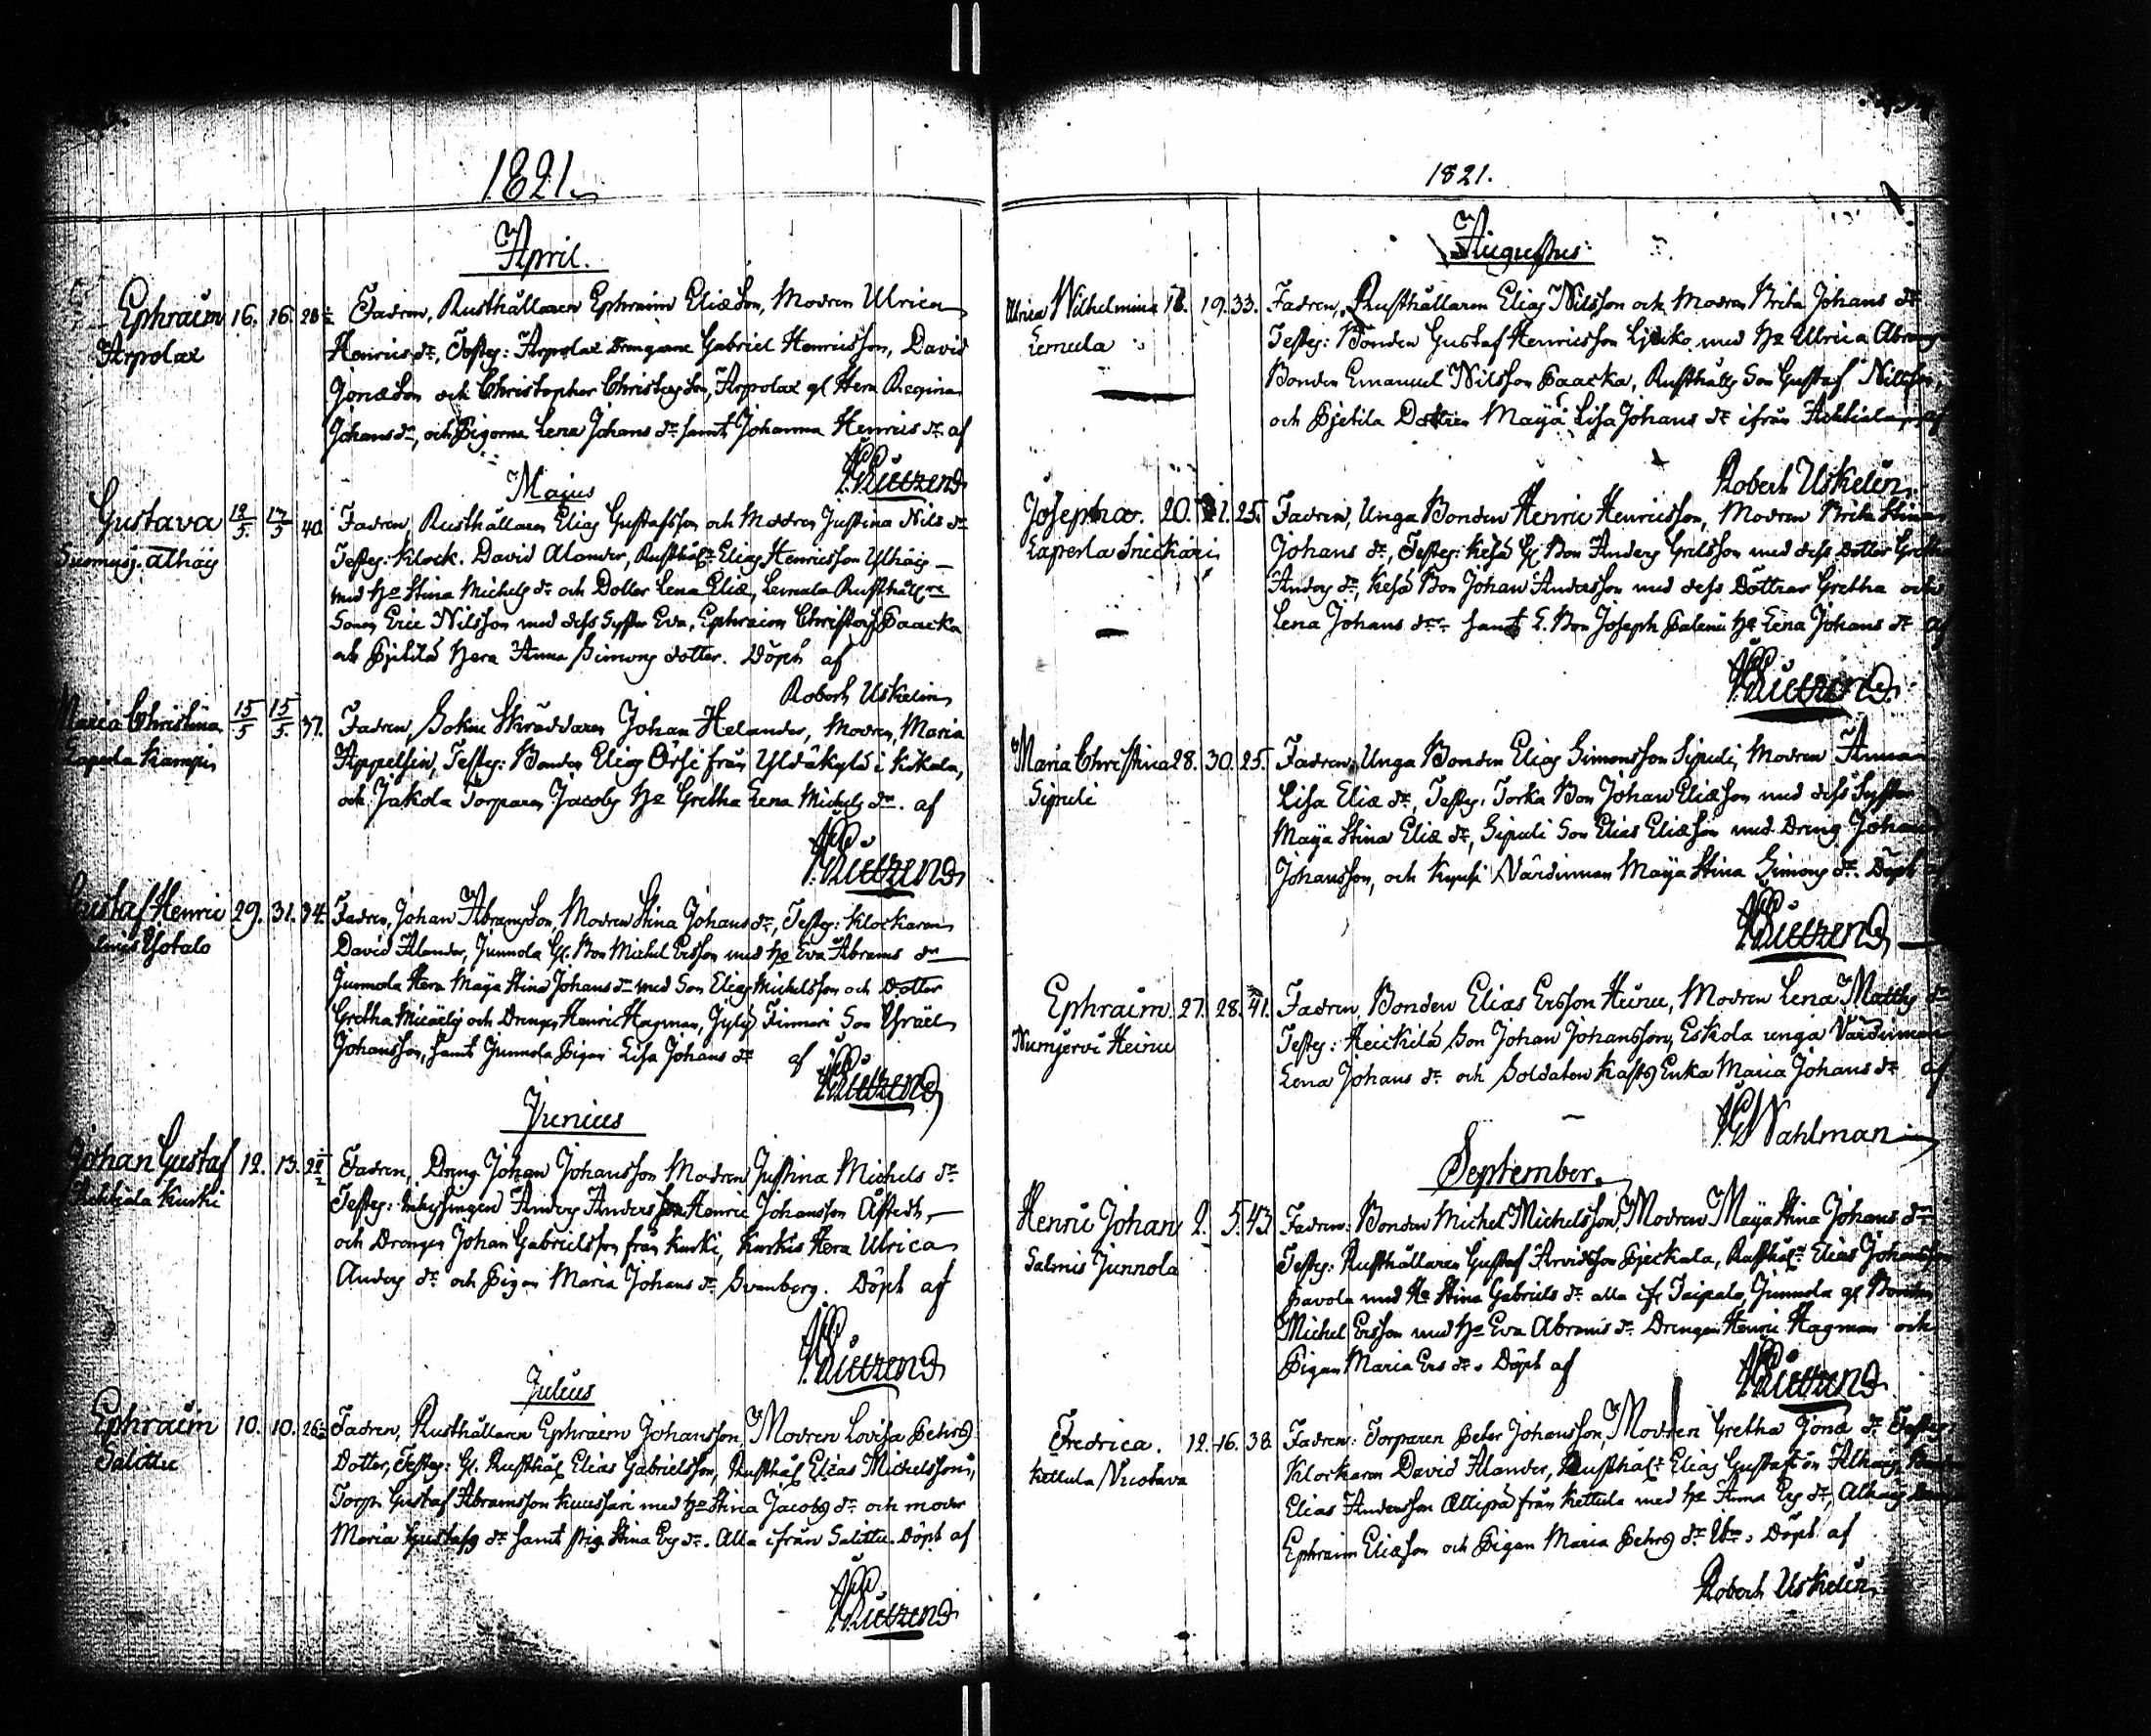 1821.
April.
Ephraim 16. 16. 28½ Fadren, Rusthållaren Ephraim Eliæson, Modren Ulrica
Arpolax Henrics dr, Testes: Arpolax Drengarne Gabriel Henricsson, David
Jonæson och Christopher Christersson, Arpolax gl Hera Regina
Johansdr, och Pigorna Lena Johans dr samt Johanna Henrics dr af
Majus
Gustava 12/5. 17/5 40. Fadren, Rusthållaren Elias Gustafsson och Modren Justina Nils dr
Suomusj. Alhäis Testes: Klock. David Alander, Rusthål: Elias Henricsson Ylhäis
med Ho Stina Michels dr och Dotter Lena Eliæ, Lemula Rusthåll
Sonen Eric Nilsson med dess Syster Eva, Ephraim Christers Paacka
och Pjetilä Hera Anna Simons dotter. Döpt af
Robert Uskelin
Maria Christina 15/5 15/5. 37. Fadren, Sokne Skräddaren Johan Helander, Modren, Maria
Laperla Kampis Appelsin, Testes: Bonden Elias Örsi från Yldäkylä i Kikala,
och Jakola Torparen Jacobs Ho Gretha Lena Michels dr. af
Gustaf Henric 29. 31. 34. Fadren, Johan Abramsson, Modren Stina Johans dr, Testes: Klockaren
David Alander, Junnola Gl. Bon Michel Ersson med Ho Eva Abrams dr
Junnola Hera Maja Stina Johans dr med Son Elias Michelsson och Dotter
Gretha Micaels och Drengen Henric Hagman, Finnari Son Israel
Johansson, samt Junnola Pigan Lisa Johans dr af
Junius
Johan Gustaf 12. 13. 22½ Fadren, Dreng Johan Johansson Modren Justina Michels dr
Achtiala Kurki Testes: Inhysingen Anders Andersson Henric Johansson Åstedt,
och Drengen Johan Gabrielsson från Kurki, Kurkis Hera Ulrica
Anders dr och Pigan Maria Johans dr Svanberg. Döpt af
Julius
Ephraim 10. 10. 26 Fadren, Rusthållaren Ephraim Johansson, Modren Lovisa Pehrs
Salittu Dotter, Testes: Gl. Rusthål Elias Gabrielsson, Rusthål Elias Michelsson,
Torp. Gustaf Abramsson Kuusari med Ho Stina Jacobs dr och moder
Maria Gustafs dr samt pig Stina Ers dr. Alla ifrån Salittu. Döpt af
1821.
Augustus:
Ulrica Wilhelmina 18. 19. 33. Fadren, Rusthållaren Elias Nilsson och Modren Brita Johans dr
Lemula Testes: Bonden Gustaf Henricsson med Ho Ulrica Abrams
Bonden Emanuel Nilsson Paacka, Rusthålls Son Gustaf Nilsson,
och Pjetila Dottren Maja Lisa Johans dr ifrån Achtiala, af
Robert Uskelin.
Josepha. 20. 21. 25. Fadren, Unga Bonden Henric Henricsson, Modren Brita Stina
Laperla Srickari Johans dr, Testes: Kesä Gl. Bon Anders Grelsson med dess Dotter Gretha
Anders dr, Kesä Bon Johan Andersson med dess Döttrar Gretha och
Lena Johans dr samt L. Bon Joseph Palenii Ho Lena Johans dr af
Maria Christina 28. 30. 25. Fadren, Unga Bonden Elias Simonsson Sipuli, Modren Anna
Sipuli Lisa Eliæ dr, Testes: Torka Bon Johan Eliæson med dess Syster
Maja Stina Eliæ dr, Sipuli Son Elias Eliæson med Dreng Johan
Johansson, och Kynsi Värdinnan Maja Stina Simons dr. Döpt
Ephraim 27. 28. 41. Fadren, Bonden Elias Ersson Heinu, Modren Lena Matts dr
Nurmjervi Heinu Testes: Heickilä Son Johan Johansson, Eskola unga Värdinnan
Lena Johans dr och Soldaten Kasts Enka Maria Johans dr af
Wahlman
September.
Henric Johan 2. 5. 43. Fadren: Bonden Michel Michelsson, Modren Maja Stina Johans dr
Salmis Junnola Testes: Rusthållaren Gustaf Arvidsson Pjeckala, Rusthål: Elias Johansson
Pavola med Ho Stina Gabriels dr alla ifr Taipale, Junnola gl Bonden
Michel Ersson med Ho Eva Abrams dr. Drengen Henric Hagman och
Pigan Maria Ers dr. Döpt af
Fredrica. 12. 16. 38. Fadren: Torparen Peter Johansson, Modren Gretha Jonæ dr Testes
Kettula Klockaren David Alander, Rusthål: Elias Gustafson Alhäis,
Elias Andersson Ollipä från Kettula med Ho Anna Ers dr, Alhäis
Ephraim Eliæson och Pigan Maria Pehrs dr. Döpt af
Robert Uskelin